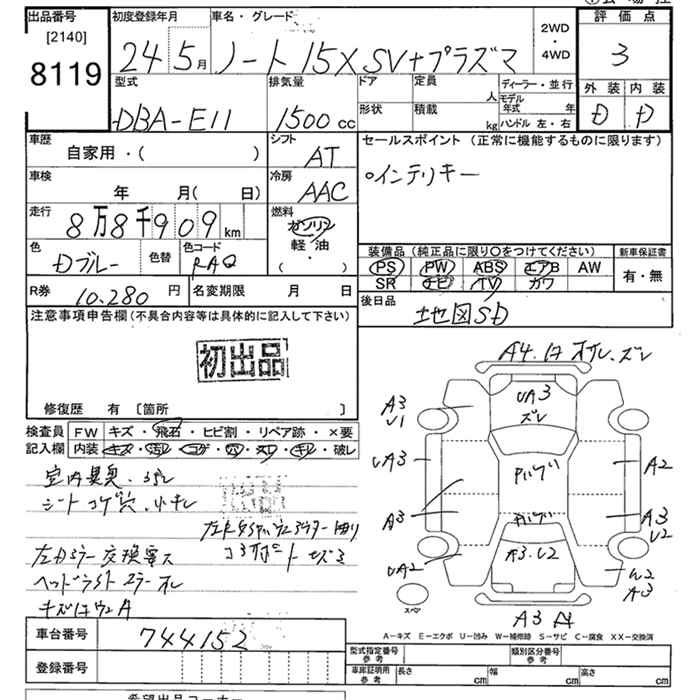 出品番号 初度登録年月 車名・グレード 評価点
[2140]
8119
24 5月 ノート 15X SV+プラズマ
2WD
・
4WD
3
型式 排気量 ドア 定員 人 ディーラー・並行 外装 内装
DBA-E11 1500cc 形状 積載 kg モデル年式 年 D D
ハンドル 左・右
車歴 シフト セールスポイント(正常に機能するものに限ります)
自家用・( ) AT
○インテリキー
車検 冷房
年 月( 日) AAC
走行 燃料
8万8千909km ガソリン
軽・油
( )
色 色替 色コード 装備品(純正品に限り○をつけてください) 新車保証書
Dブルー RAQ PS PW ABS エアB AW 有・無
SR ナビ TV カワ
R券 10,280円 名変期限 月 日 後日品
地図SD
注意事項申告欄(不具合内容等は具体的に記入して下さい)
初出品
修復歴 有 [箇所 ]
検査員 FW キズ・飛石・ヒビ割・リペア跡・×要
記入欄 内装 キズ・汚レ・コゲ・穴・スレ・キレ・破レ
室内異臭
シート コゲ穴
左右ミラー
ヘッドライト
744152
車台番号
登録番号
A4
UA3
ズレ
A3
U1
UA3
A3
UA2
A2
A3
U2
A3.U2
A3
スペア
A3
A-キズ E-エクボ U-凹み W-補修跡 S-サビ C-腐食 XX-交換済
型式指定番号 参考 類別区分番号 参考
車庫証明用 参考 長さ cm 幅 cm 高さ cm
希望出品コーナー